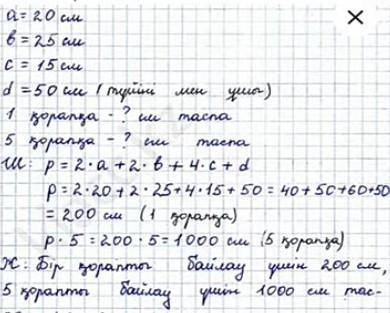 a = 20 см
в = 25 см
с = 15 см
d = 50 см (түйіні мен ұшы)
1 қорапқа - ? см таспа
5 қорапқа - ? см таспа
Ш: p = 2·a + 2·в + 4·c + d
p = 2·20 + 2·25 + 4·15 + 50 = 40 + 50 + 60 + 50
= 200 см (1 қорапқа)
p·5 = 200·5 = 1000 см (5 қорапқа)
Ж: Бір қорапты байлау үшін 200 см,
5 қорапты байлау үшін 1000 см тас-